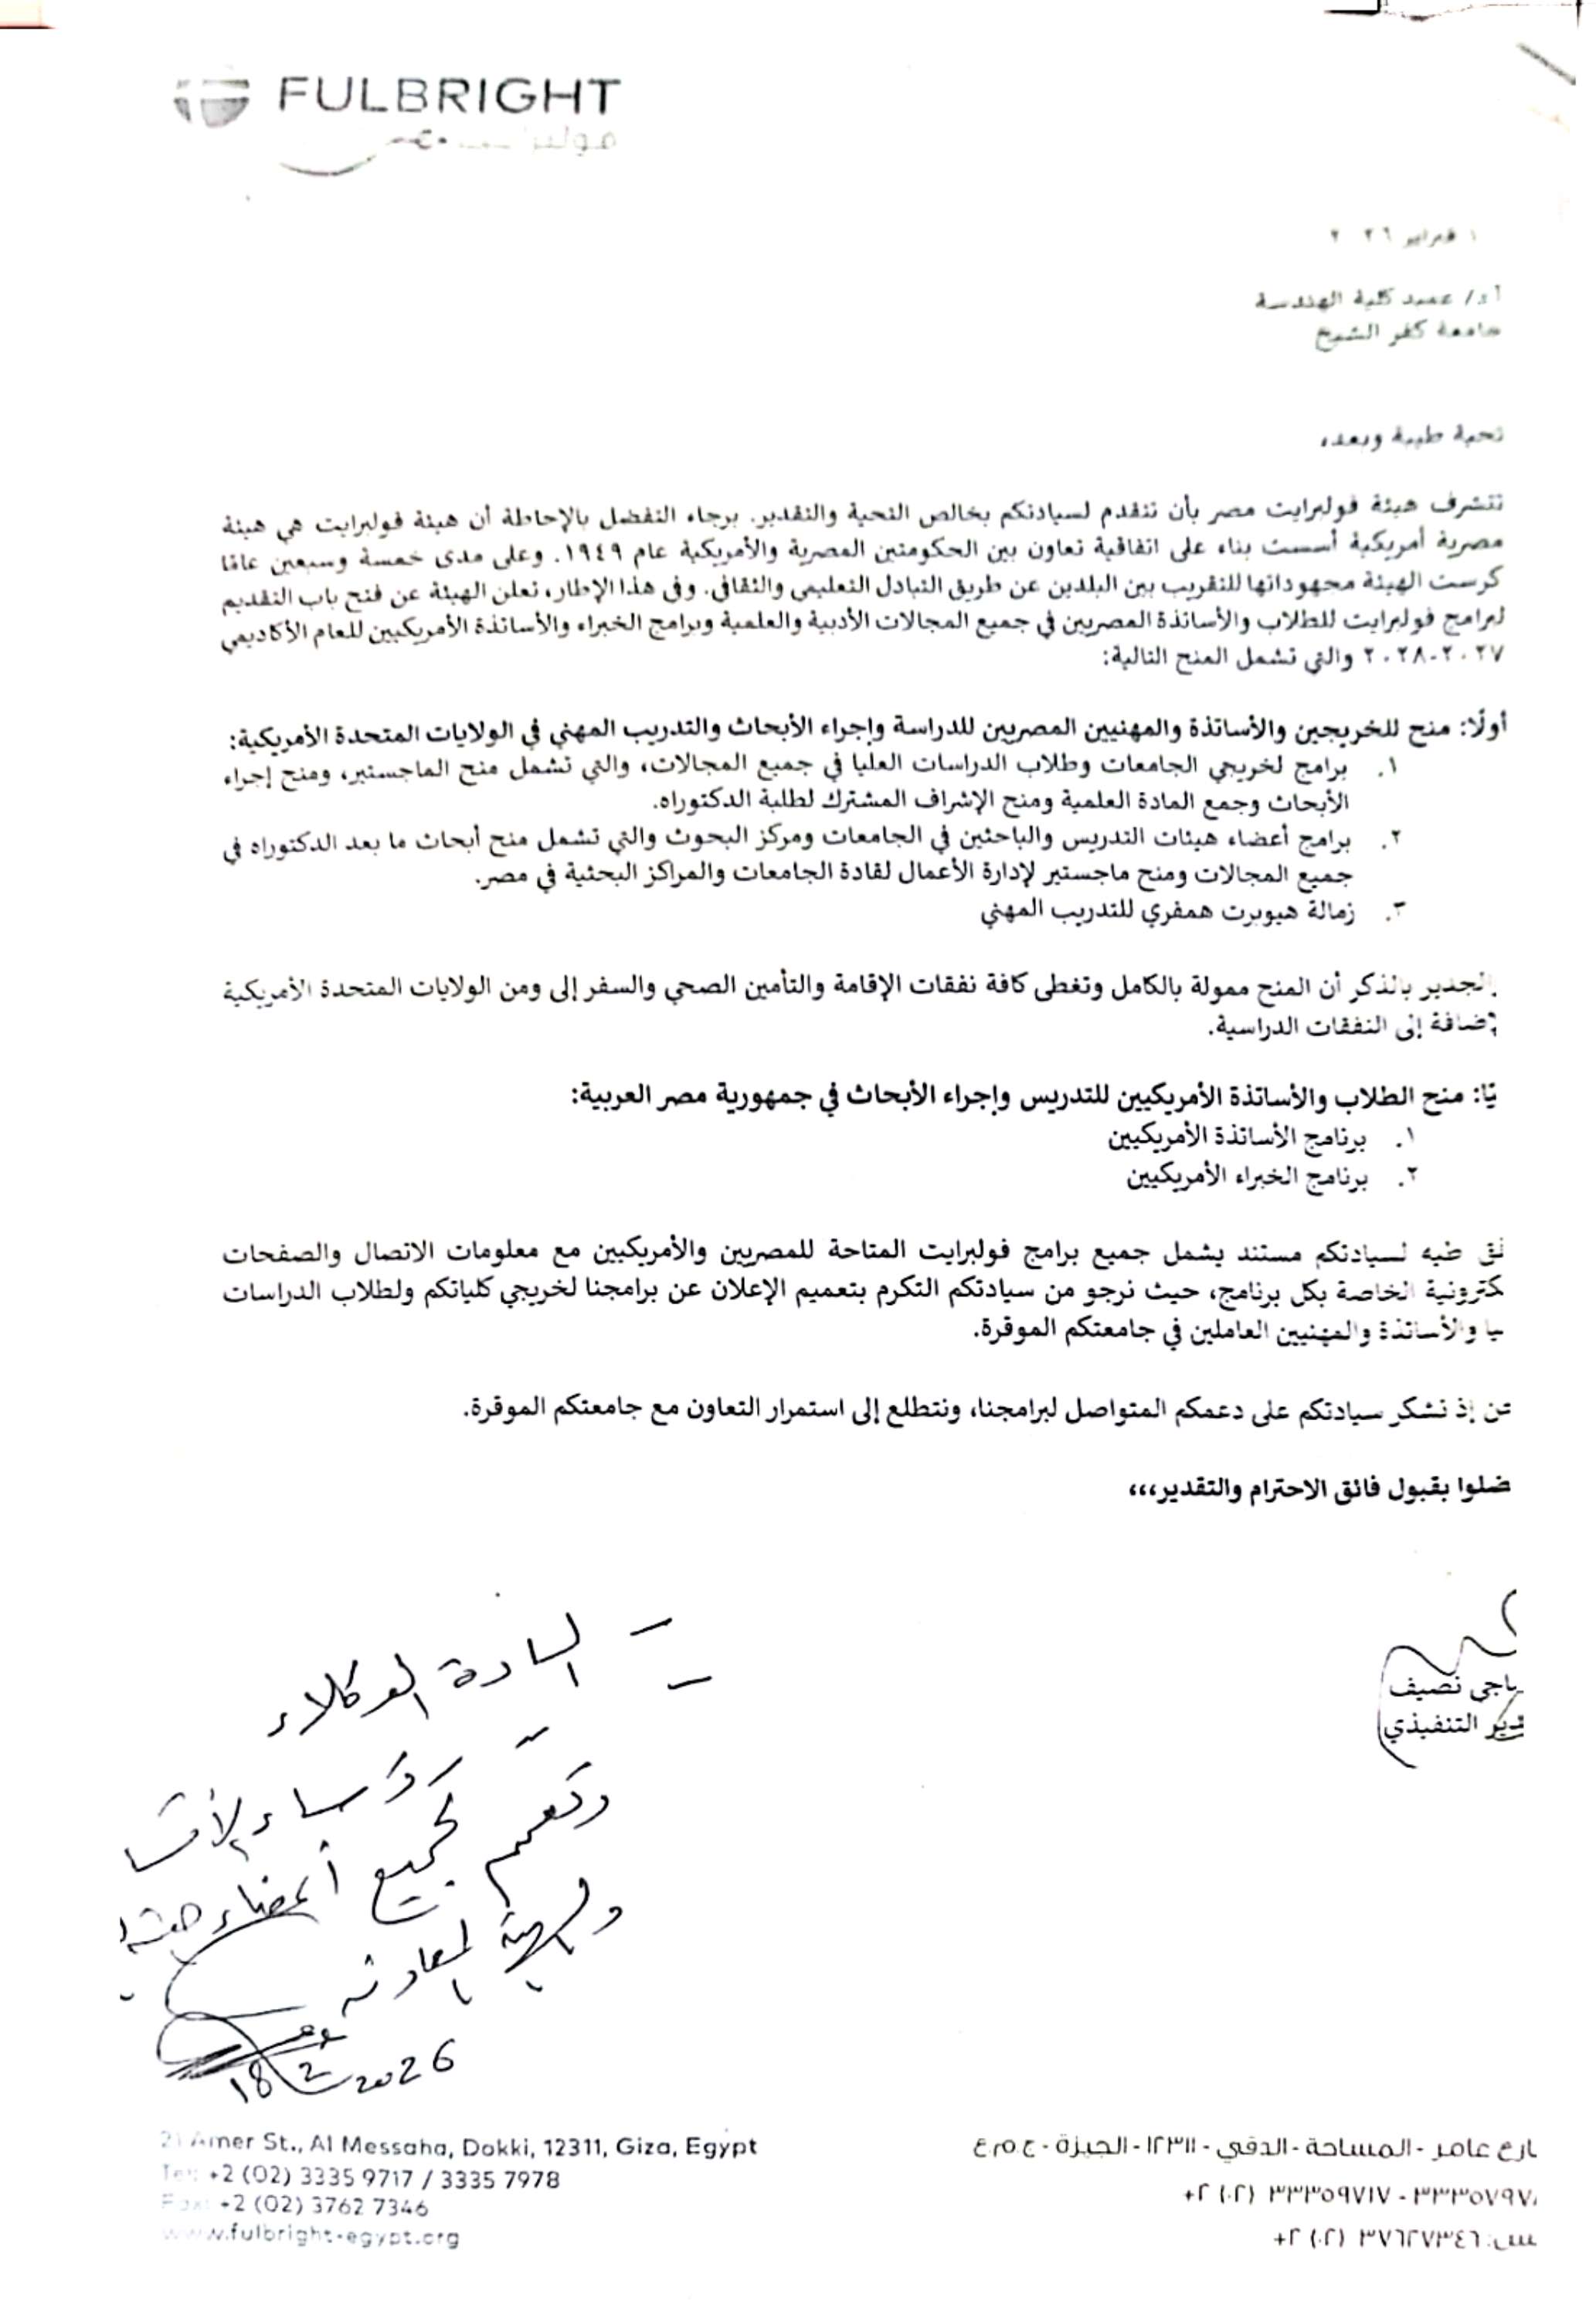 FULBRIGHT
١ فبراير ٢٠٢٦
أ.د/ عميد كلية الهندسة
جامعة كفر الشيخ
تحية طيبة وبعد،
تتشرف هيئة فولبرايت مصر بأن تتقدم لسيادتكم بخالص التحية والتقدير. برجاء التفضل بالإحاطة أن هيئة فولبرايت هي هيئة
مصرية أمريكية أسست بناء على اتفاقية تعاون بين الحكومتين المصرية والأمريكية عام ١٩٤٩. وعلى مدى خمسة وسبعين عامًا
كرست الهيئة مجهوداتها للتقريب بين البلدين عن طريق التبادل التعليمي والثقافي. وفى هذا الإطار، تعلن الهيئة عن فتح باب التقديم
لبرامج فولبرايت للطلاب والأساتذة المصريين في جميع المجالات الأدبية والعلمية وبرامج الخبراء والأساتذة الأمريكيين للعام الأكاديمي
٢٠٢٧-٢٠٢٨ والتي تشمل المنح التالية:
أولًا: منح للخريجين والأساتذة والمهنيين المصريين للدراسة وإجراء الأبحاث والتدريب المهني في الولايات المتحدة الأمريكية:
١. برامج لخريجي الجامعات وطلاب الدراسات العليا في جميع المجالات، والتي تشمل منح الماجستير، ومنح إجراء
الأبحاث وجمع المادة العلمية ومنح الإشراف المشترك لطلبة الدكتوراه.
٢. برامج أعضاء هيئات التدريس والباحثين في الجامعات ومركز البحوث والتي تشمل منح أبحاث ما بعد الدكتوراه في
جميع المجالات ومنح ماجستير لإدارة الأعمال لقادة الجامعات والمراكز البحثية في مصر.
٣. زمالة هيوبرت همفري للتدريب المهني
الجدير بالذكر أن المنح ممولة بالكامل وتغطى كافة نفقات الإقامة والتأمين الصحي والسفر إلى ومن الولايات المتحدة الأمريكية
إضافة إلى النفقات الدراسية.
يًا: منح الطلاب والأساتذة الأمريكيين للتدريس وإجراء الأبحاث في جمهورية مصر العربية:
١. برنامج الأساتذة الأمريكيين
٢. برنامج الخبراء الأمريكيين
طيه لسيادتكم مستند يشمل جميع برامج فولبرايت المتاحة للمصريين والأمريكيين مع معلومات الاتصال والصفحات
كترونية الخاصة بكل برنامج، حيث نرجو من سيادتكم التكرم بتعميم الإعلان عن برامجنا لخريجي كلياتكم ولطلاب الدراسات
يا والأساتذة والمهنيين العاملين في جامعتكم الموقرة.
إذ نشكر سيادتكم على دعمكم المتواصل لبرامجنا، ونتطلع إلى استمرار التعاون مع جامعتكم الموقرة.
ضلوا بقبول فائق الاحترام والتقدير،،،
اجى نصيف
دير التنفيذي
- السادة الوكلاء
- رؤساء الأقسا
وتعمم لجميع أعضاء هيئة
والهيئة المعاونة
18/2/2026
21 Amer St., Al Messaha, Dokki, 12311, Giza, Egypt
Tel: +2 (02) 3335 9717 / 3335 7978
Fax: +2 (02) 3762 7346
www.fulbright-egypt.org
ارع عامر - المساحة - الدقي - ١٢٣١١ - الجيزة - ج.م.ع
+٢ (٠٢) ٣٣٣٥٩٧١٧ - ٣٣٣٥٧٩٧٨
س: ٣٧٦٢٧٣٤٦ (٠٢) ٢+